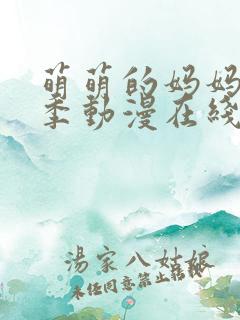 萌萌的妈妈
季動漫在綫
湯家八姑娘
未经同意禁止转载